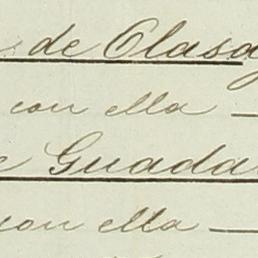 de Olasa
con ella
Guada
con ella